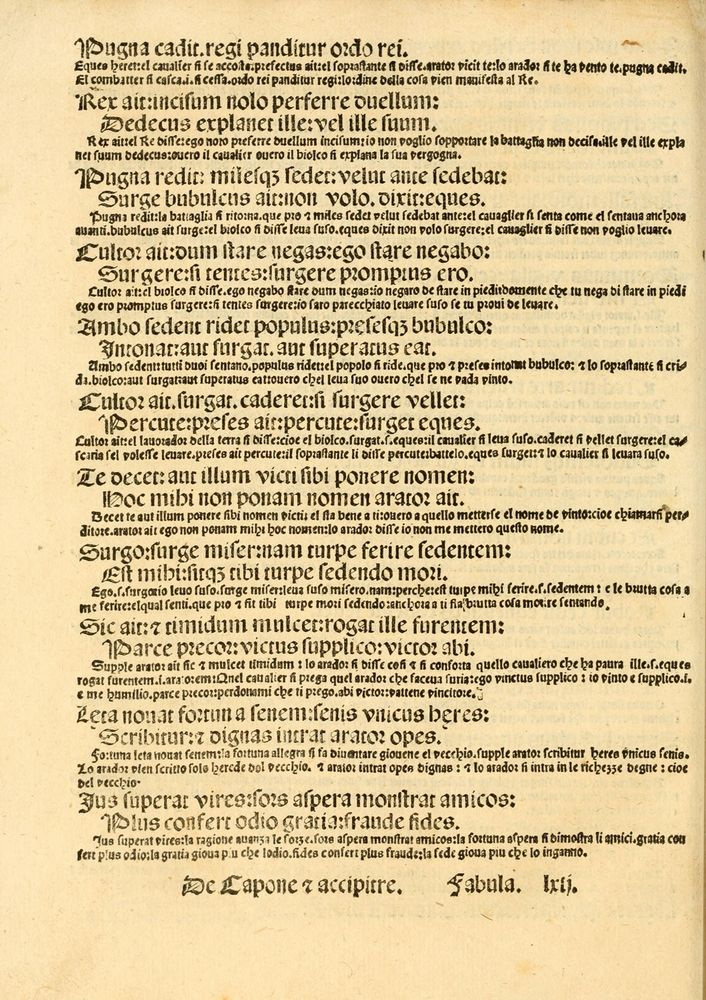 Pugna cadit.regi panditur ordo rei.
Eques heret:el caualier si se accosta.presectus ait:el soprastante si disse.arator vicit te:lo arador si te ha vento te.pugna cadit.
El combatter si casca.i.si cessa.ordo rei panditur regi:lordine della cosa vien manifesta al Re.
Rex ait:incisum nolo perferre duellum:
Dedecus explanet ille:vel ille suum.
Rex ait:el Re disse:ego noro preferre duellum incisum:io non voglio sopportare la battaglia non decisa.ille vel ille expla
net suum dedecus:ouero il caualier ouero il biolco si explana la sua vergogna.
Pugna redit: milesqȝ sedet:velut ante sedebat:
Surge bubulcus ait:non volo.dixit:eques.
Pugna redit:la battaglia si ritorna.que pro ⁊ miles sedet velut sedebat ante:el cauaglier si senta come el sentaua anchora
auanti.bubulcus ait surge:el biolco si disse leua suso.eques dixit non volo surgere:el caualier si disse non voglio leuare.
Cultor ait:dum stare negas:ego stare negabo:
Surgere:si tentes:surgere promptus ero.
Cultor ait:el biolco si disse.ego negabo stare dum negas:io negaro de stare in piedi:domente che tu nega di stare in piedi
ego ero promptus surgere:si tentes surgere:io saro parecchiato leuare suso se tu proui de leuare.
Ambo sedent ridet populus:presesqȝ bubulco:
Intonat:aut surgat.aut superatus eat.
Ambo sedent:tutti duoi sentano.populus ridet:el popolo si ride.que pro ⁊ preses intonat bubulco: ⁊ lo soprastante si cri-
da.biolco:aut surgat:aut superatus eat:ouero chel leua suo ouero chel se ne vada vinto.
Cultor ait.surgat.caderet:si surgere vellet:
Percute:preses ait:percute:surget eques.
Cultor ait:el lauorador della terra si disse:cioe el biolco.surgat.s.eques:il caualier si leua suso.caderet si vellet surgere:el ca-
scaria sel volesse leuare.preses ait percute:il soprastante li disse percute:battelo.eques surget:⁊ lo caualier si leuara suso.
Te decet: aut illum victi sibi ponere nomen:
Hoc mihi non ponam nomen arator ait.
Decet te aut illum ponere sibi nomen victi: el sta bene a ti:ouero a quello metterse el nome de vinto:cioe chiamarsi per-
ditore.arator ait ego non ponam mihi hoc nomen:lo arador disse io non me mettero questo nome.
Surgo:surge miser:nam turpe ferire sedentem:
Est mihi:sitqȝ tibi turpe sedendo mori.
Ego.s.surgo:io leuo suso.surge miser:leua suso misero.nam:perche:est turpe mihi ferire.s.sedentem: e le brutta cosa a
me ferire:elqual senti.que pro ⁊ sit tibi turpe mori sedendo:anchora a ti sia brutta cosa morire sentando.
Sic ait:⁊ timidum mulcet:rogat ille furentem:
Parce precor:victus supplico:victor abi.
Supple arator ait sic ⁊ mulcet timidum : lo arador si disse cosi ⁊ si conforta quello caualiero che ha paura ille.s.eques
rogat furentem.i.aratorem:Quel caualier si prega quel arador che faceua furia:ego vinctus supplico : io vinto e supplico.i.
e me humilio.parce precor:perdonami che ti prego.abi victor:vattene vincitore.
Leta nouat fortuna senem:senis vnicus heres:
Scribitur:⁊ dignas intrat arator opes.
Fortuna leta nouat senem:la fortuna allegra si fa diuentare giouene el vecchio.supple arator scribitur heres vnicus senis.
Lo arador vien scritto solo herede del vecchio. ⁊ arator intrat opes dignas : ⁊ lo arador si intra in le richezze degne : cioe
del vecchio.
Jus superat vires:sors aspera monstrat amicos:
Plus confert odio gratia:fraude fides.
Jus superat vires:la ragione auanza le forze.sors aspera monstrat amicos:la fortuna aspera si dimostra li amici.gratia con
fert plus odio:la gratia gioua piu che lodio.fides confert plus fraude:la fede gioua piu che lo inganno.
De Capone ⁊ accipitre. Fabula. lxij.